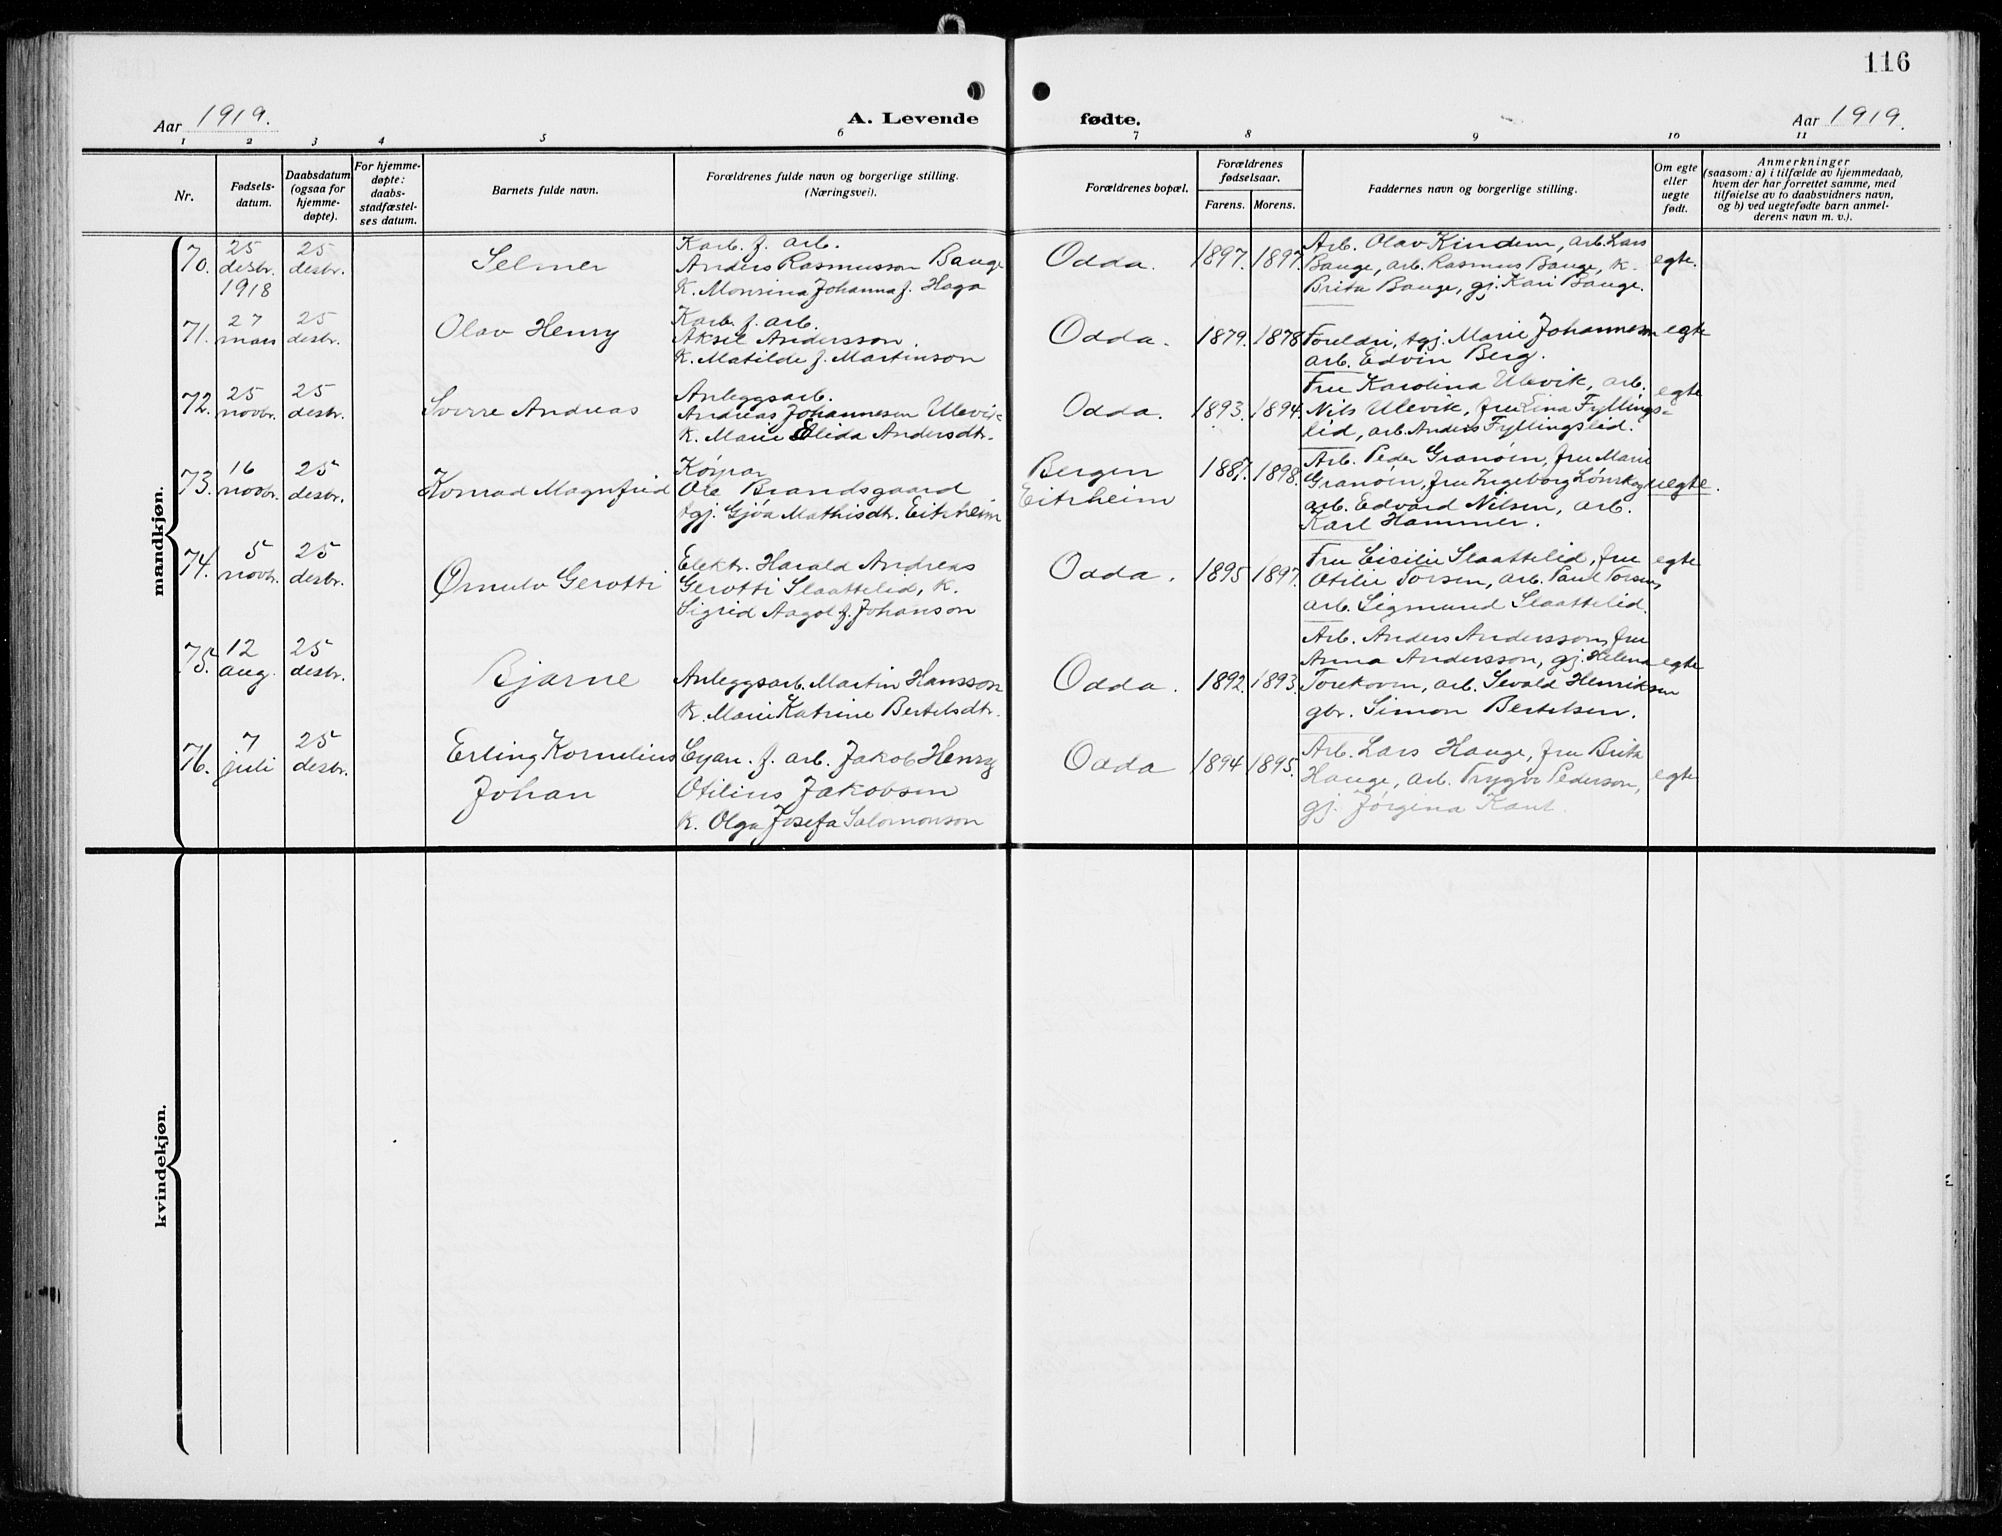 116
Aar 1919.
A. Levende fødte.
Aar 1919.
1 2 3 4 5 6 7 8 9 10 11
Nr.
Fødsels-
datum.
Daabsdatum
(ogsaa for
hjemme-
døpte).
For hjemme-
døpte:
daabs-
stadfæstel-
ses datum.
Barnets fulde navn.
Forældrenes fulde navn og borgerlige stilling.
(Næringsvei).
Forældrenes bopæl.
Forældrenes
fødselsaar.
Farens. Morens.
Faddernes navn og borgerlige stilling.
Om egte
eller
uegte
født.
Anmerkninger
(saasom: a) i tilfælde av hjemmedaab,
hvem der har forrettet samme, med
tilføielse av to daabsvidners navn,
og b) ved uegtefødte barn anmel-
derens navn m. v.).
mandkjøn.
70.
25
desbr.
1918
25
desbr.
Selmer
Karb. f. arb.
Anders Rasmusson Bauge
k. Monsina Johanna f. Haga
Odda.
1897. 1897.
Arb. Olav Kindem, arb. Lars
Bauge, arb. Rasmus Bauge, k.
Brita Bauge, gj. Kari Bauge.
egte.
71.
27
mars
25
desbr.
Olav Henry
Karb. f. arb.
Aksel Andersson.
k. Matilde f. Martinson
Odda.
1879. 1878
Foreldri, tgj. Marie Johannesen
arb. Edvin Berg.
egte
72.
25
novbr.
25
desbr.
Sverre Andreas
Anleggsarb.
Andreas Johannesen Ulevik
k. Marie Elida Andersdtr.
Odda.
1893. 1894.
Fru Karolina Ulevik, arb.
Nils Ulevik, fru Lina Fyllings-
lid, arb. Anders Fyllingslid.
egte
73.
16
novbr.
25
desbr.
Konrad Magnfrid
Køyrar
Ole Brandsgaard
tgj. Gjøa Mathisdtr. Eitrheim
Bergen
Eitrheim
1887. 1898.
Arb. Peder Granøien, fru Marie
Granøin, fru Ingeborg Lønskog
arb. Edvard Nilsen, arb.
Karl Hammer.
uegte.
74.
5
novbr.
25
desbr.
Ørnulv Gerotti
Elektr. Harald Andreas
Gerotti Slaattelid, k.
Sigrid Aagot f. Johanson
Odda.
1895 1897.
Fru Cicilie Slaattelid, fru
Otilie Torsen, arb. Paul Torsen,
arb. Sigmund Slaattelid.
egte
75.
12
aug.
25
desbr.
Bjarne
Anleggsarb. Martin Hansson
k. Marie Katrine Bertelsdtr.
Odda.
1892. 1893.
Arb. Anders Andersson, fru
Anna Andersson, gj. Helena
Torekoven, arb. Sevald Henriksen
gbr. Simon Bertelsen.
egte
76.
7
juli
25
desbr.
Erling Kornelius
Johan
Cyan. f. arb. Jakob Henry
Otilius Jakobsen
k. Olga Josefa Salomonson
Odda
1894 1895.
Arb. Lars Hauge, fru Brita
Hauge, arb. Trygve Pederson,
gj. Jørgina Kant.
egte
kvindekjøn.